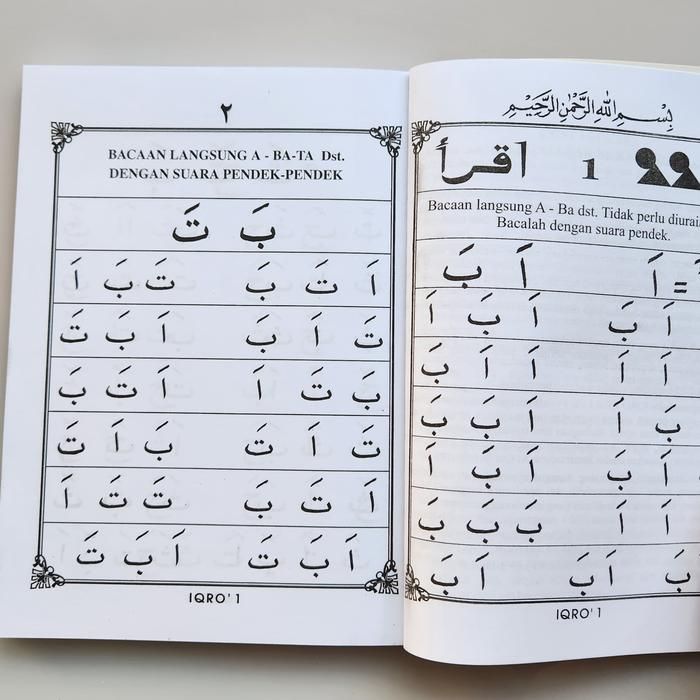 بِسْمِ اللهِ الرَّحْمٰنِ الرَّحِيْمِ
1 اقرأ
Bacaan langsung A - Ba dst. Tidak perlu
Bacalah dengan suara pendek.
= اَ اَ بَ
اَ بَ اَ بَ اَ
اَ اَ اَ اَ بَ
بَ اَ اَ بَ بَ
اَ بَ اَ بَ اَ
اَ اَ بَ بَ بَ
بَ اَ بَ اَ بَ
IQRO' 1
٢
BACAAN LANGSUNG A - BA-TA Dst.
DENGAN SUARA PENDEK-PENDEK
بَ تَ
اَ تَ بَ تَ بَ اَ
تَ اَ بَ اَ بَ تَ
بَ تَ اَ اَ تَ بَ
تَ اَ تَ بَ اَ تَ
اَ تَ بَ تَ تَ اَ
اَ بَ تَ اَ بَ تَ
IQRO' 1